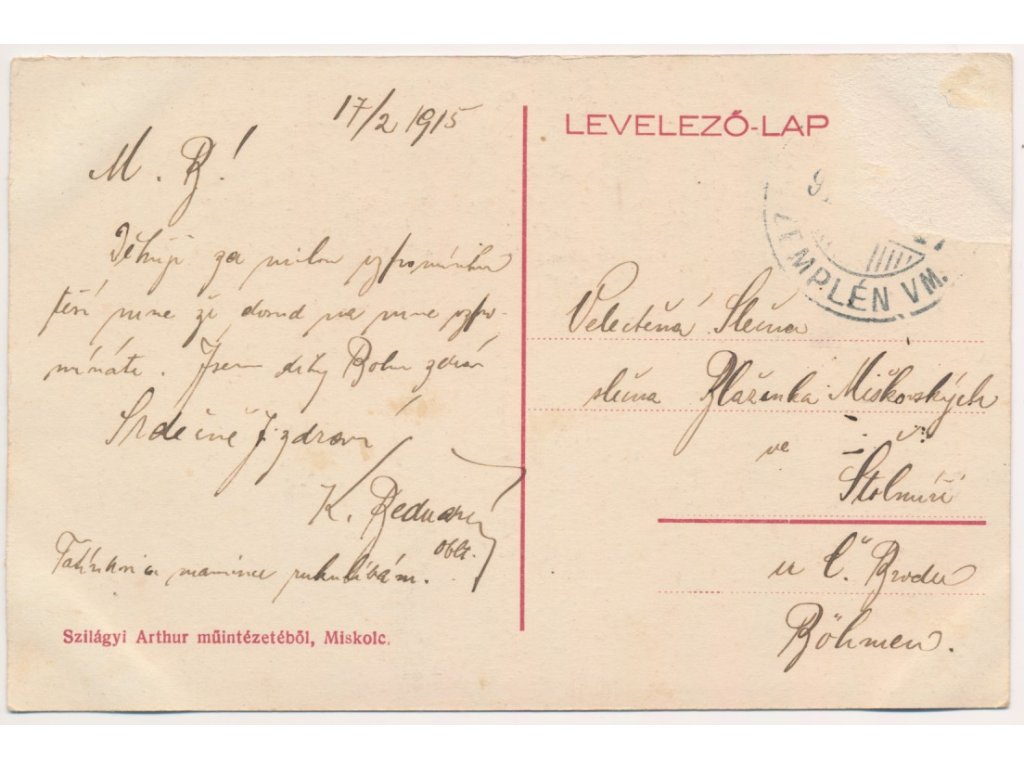 17/2 1915
M. B!
Děkuji za milou vzpomínku
těší mne že dosud na mne vzpo-
mínáte. Jsem díky Bohu zdráv
Srdečně Vás zdraví
K. Bednář
Oblt.
Tatínkovi a mamince rukulíbám.
Szilágyi Arthur műintézetéből, Miskolc.
LEVELEZŐ-LAP
ZEMPLÉN VM.
Velectěná Slečna
slečna Blaženka Miškovských
ve
Štolmíři
u Č. Brodu
Böhmen.